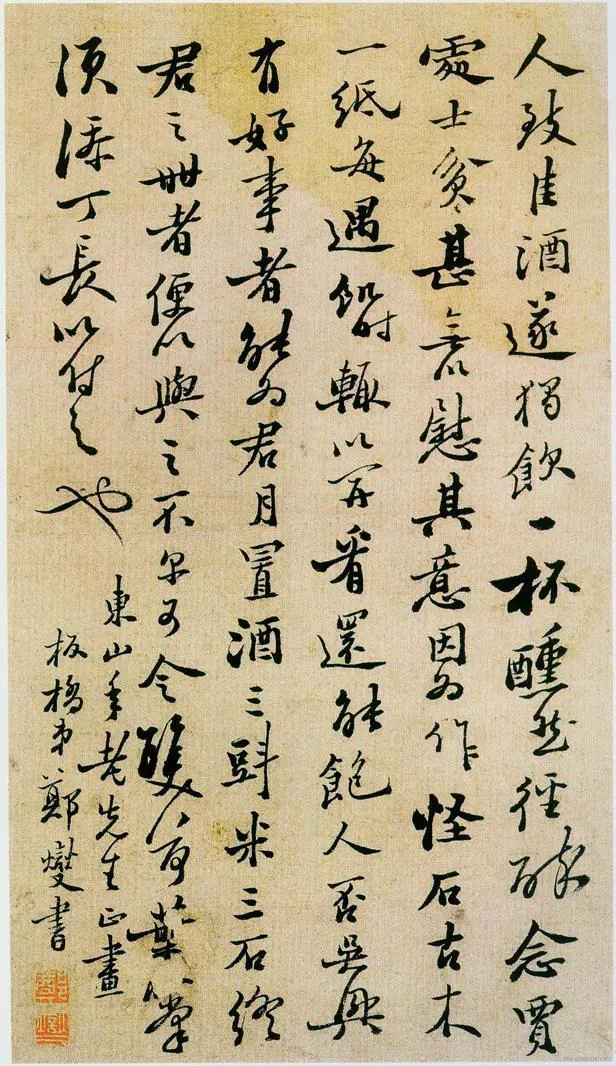 人致佳酒遂獨飲一杯醺然徑醉念賈
處士貧甚無以慰其意因為作怪石古木
一紙每遇飢時輒以開看還能飽人否吳興
有好事者能為君月置酒三斗米三石終
君之世者便以與之不爾可令雙荷葉掌
須添丁長以付之也
東山年老先生正畫
板橋弟鄭燮書